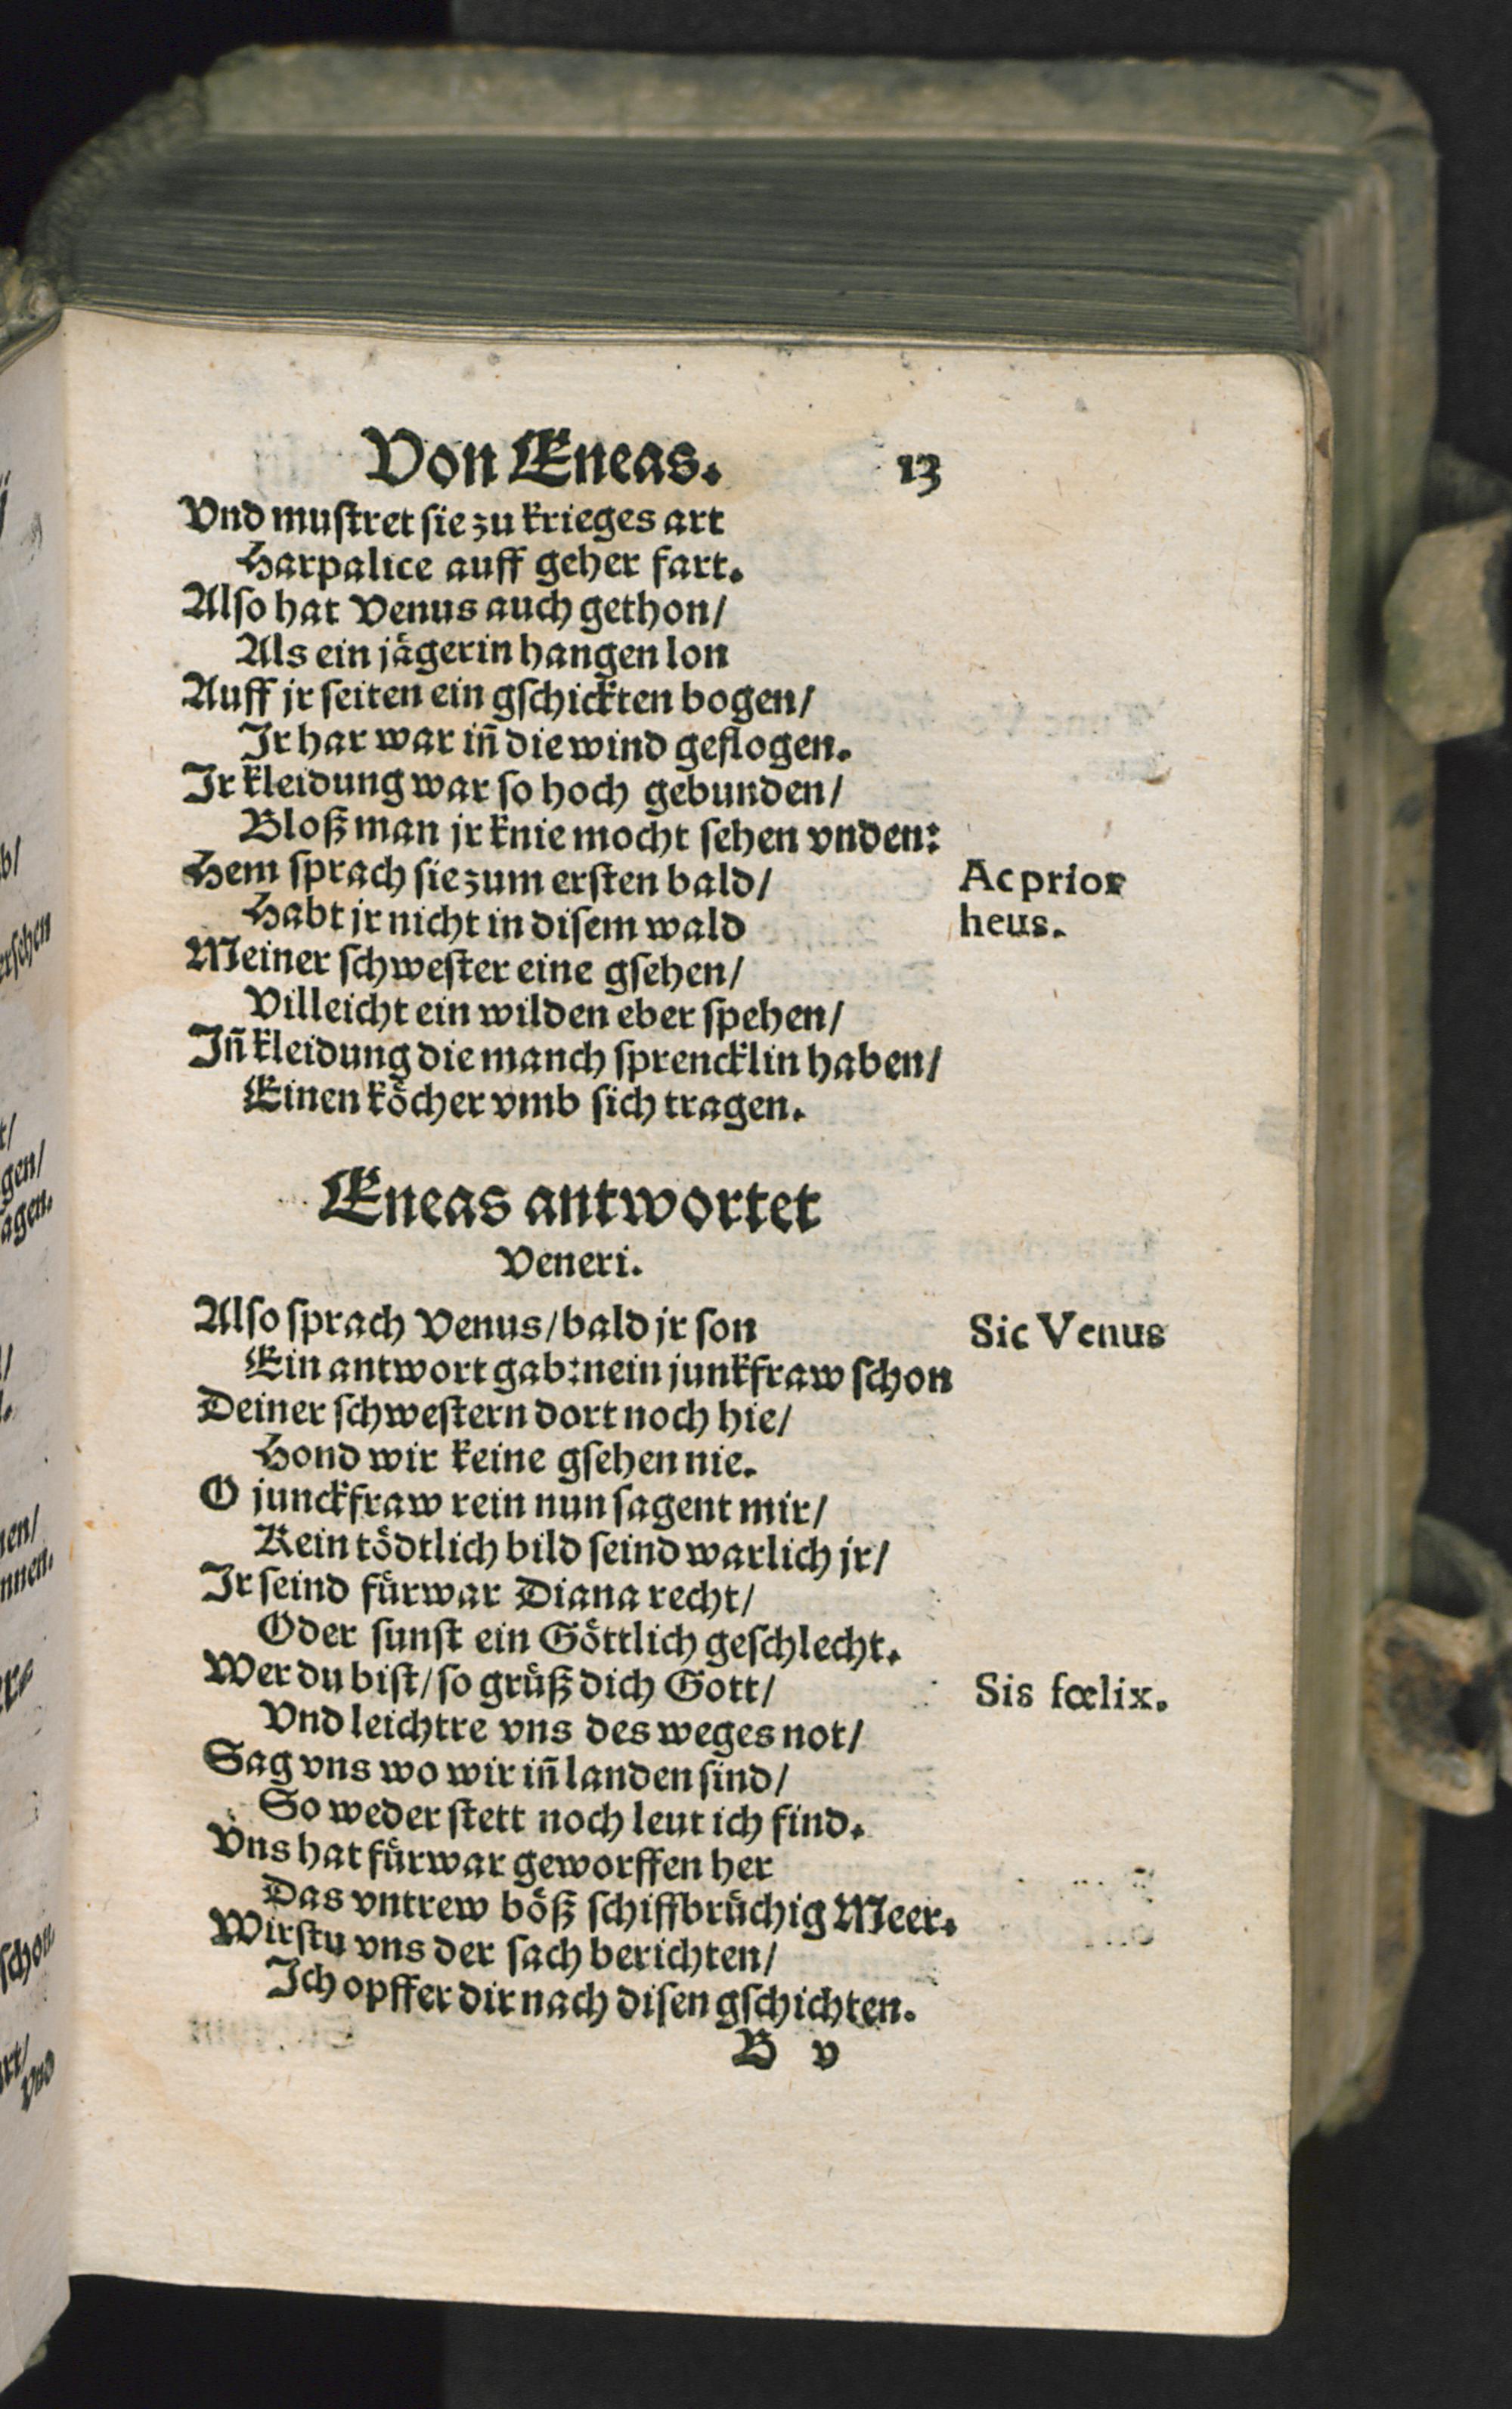 Von Eneas. 13
Vnd mustret sie zu krieges art
Harpalice auff geher fart.
Also hat Venus auch gethon/
Als ein jägerin hangen lon
Auff jr seiten ein gschickten bogen/
Ir har war iñ die wind geflogen.
Ir kleidung war so hoch gebunden/
Bloß man jr knie mocht sehen vnden:
Hem sprach sie zum ersten bald/ Ac prior
Habt jr nicht in disem wald heus.
Meiner schwester eine gsehen/
Villeicht ein wilden eber spehen/
Iñ kleidung die manch sprencklin haben/
Einen köcher vmb sich tragen.
Eneas antwortet
Veneri.
Also sprach Venus/ bald jr son Sic Venus
Ein antwort gab: nein junkfraw schon
Deiner schwestern dort noch hie/
Hond wir keine gsehen nie.
O junckfraw rein nun sagent mir/
Kein tödtlich bild seind warlich jr/
Ir seind fürwar Diana recht/
Oder sunst ein Göttlich geschlecht.
Wer du bist/ so grüß dich Gott/ Sis fœlix.
Vnd leichtre vns des weges not/
Sag vns wo wir iñ landen sind/
So weder stett noch leut ich find.
Vns hat fürwar geworffen her
Das vntrew böß schiffbrüchig Meer.
Wirstu vns der sach berichten/
Ich opffer dir nach disen gschichten.
B v